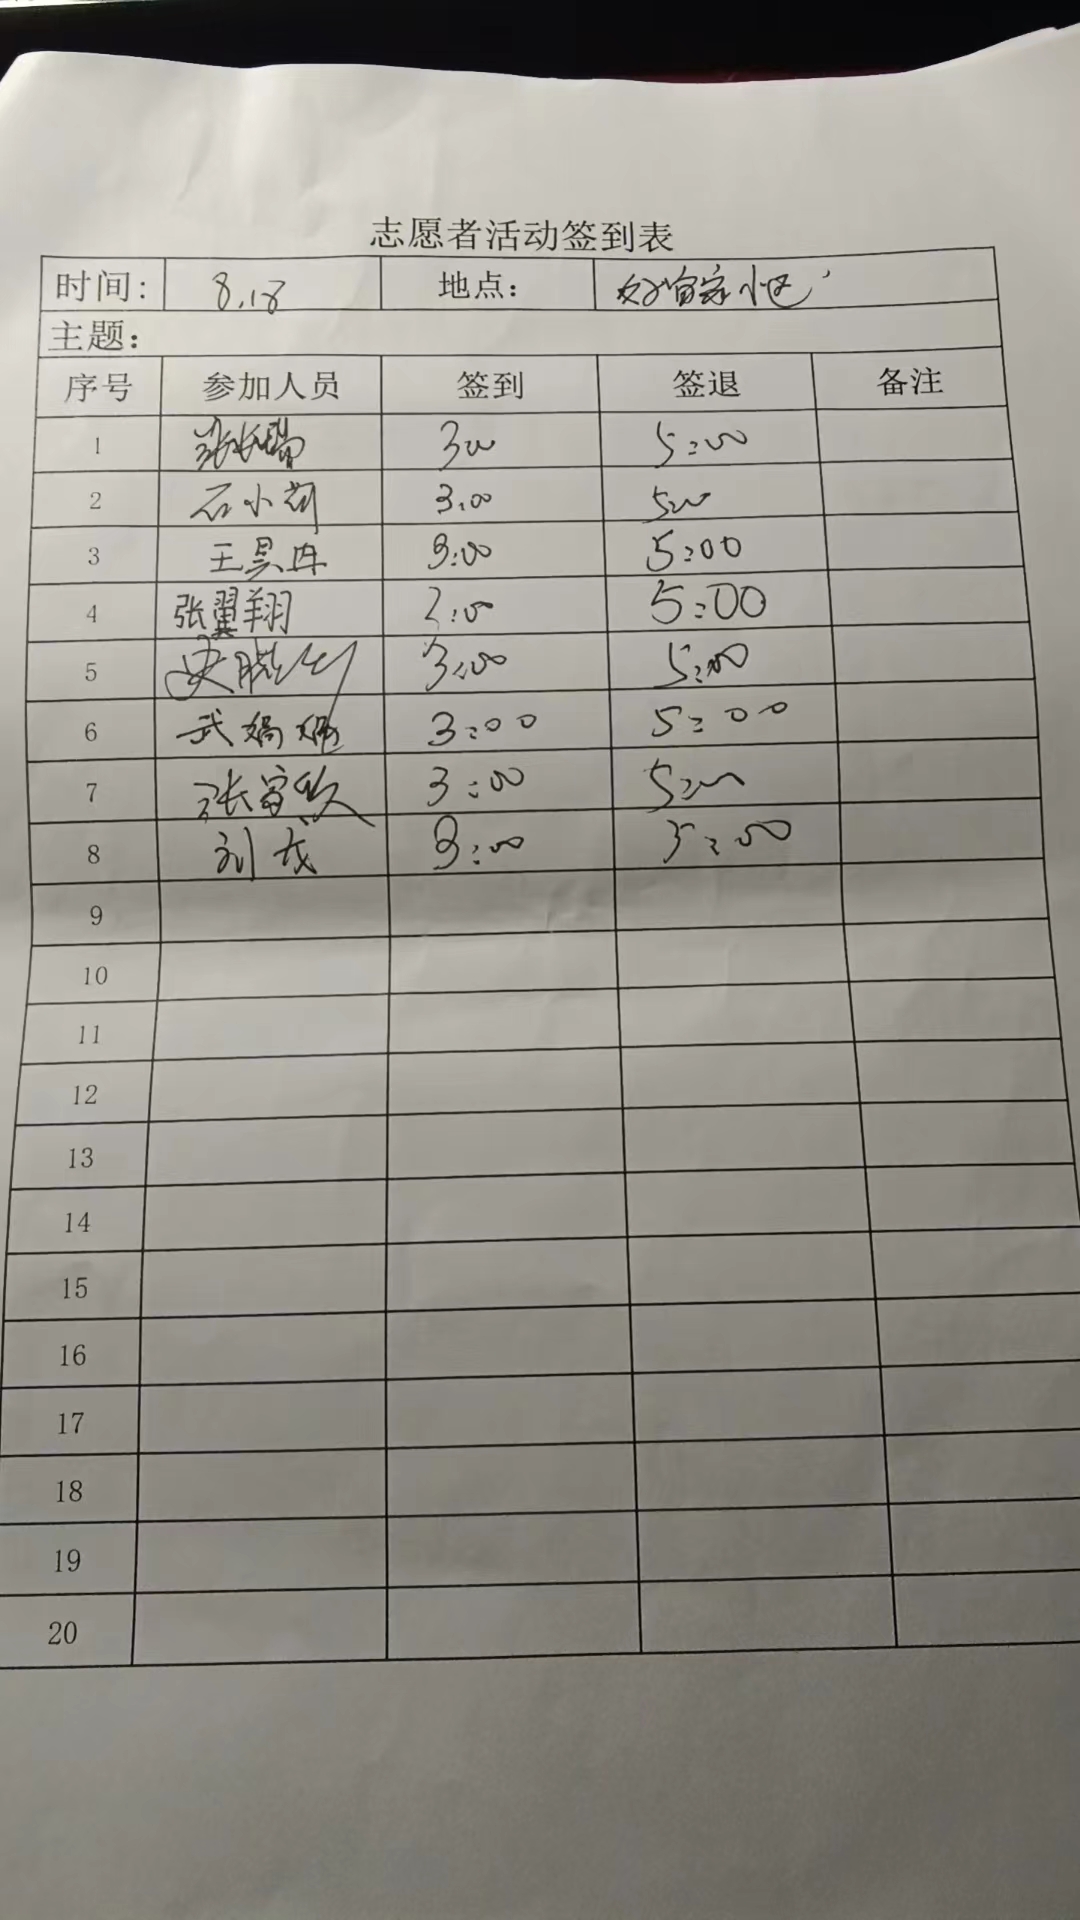 志愿者活动签到表
时间: 8.18 地点: 好管家小区
主题:
序号 参加人员 签到 签退 备注
1 张 300 5:00
2 石小莉 3:00 500
3 王昊冉 3:00 5:00
4 张翼翔 3:00 5:00
5 史晓 3:00 5:00
6 武娟娟 3:00 5:00
7 张富 3:00 5:00
8 刘戎 3:00 5:00
9
10
11
12
13
14
15
16
17
18
19
20